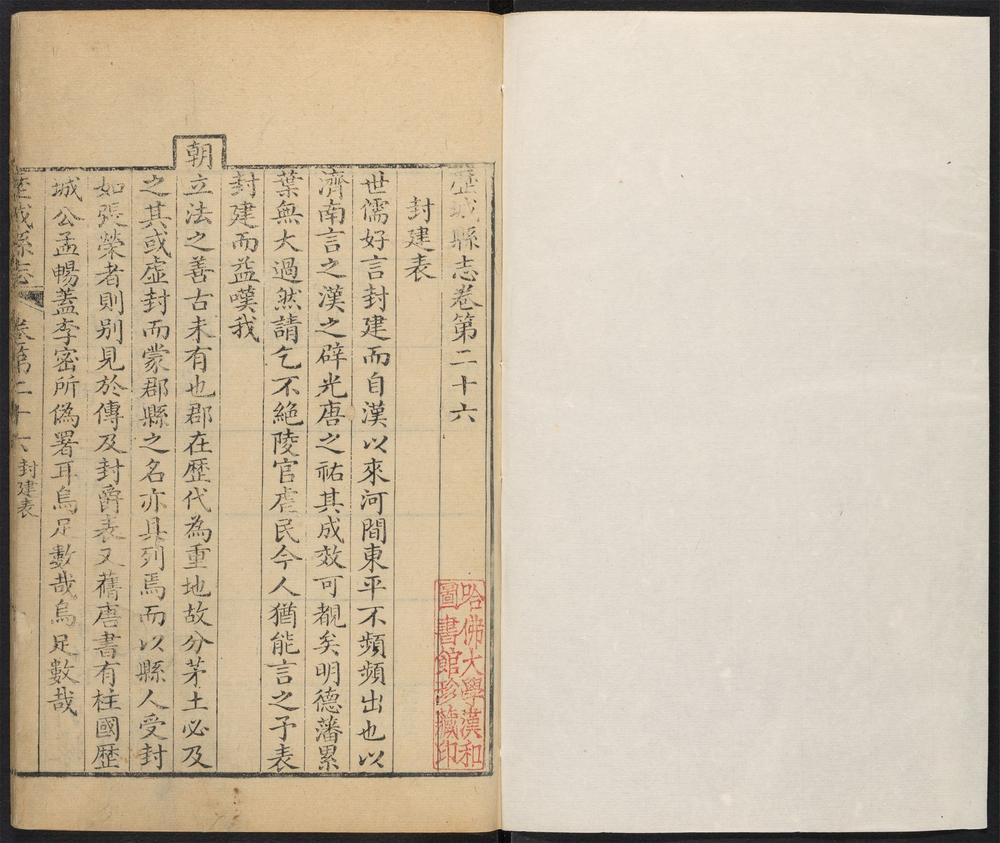 歷城縣志卷第二十六
封建表
世儒好言封建而自漢以來河間東平不頻頻出也以
濟南言之漢之辟光唐之祐其成效可覩矣明德藩累
葉無大過然請乞不絕陵官虐民今人猶能言之予表
封建而益嘆我
朝立法之善古未有也郡在歷代為重地故分茅土必及
之其或虛封而蒙郡縣之名亦具列焉而以縣人受封
如張榮者則別見於傳及封爵表又舊唐書有柱國歷
城公孟暢蓋李密所偽署耳烏足數哉烏足數哉
歷城縣志
卷第二十六
封建表
哈佛大學漢和
圖書館珍藏印